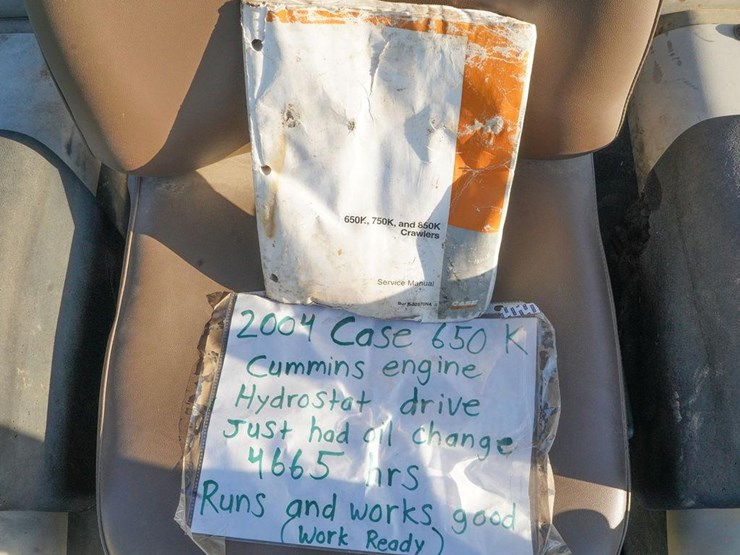 650K, 750K, and 850K
Crawlers
Service Manual
2004 Case 650 K
Cummins engine
Hydrostat drive
Just had oil change
4665 hrs
Runs and works good
(Work Ready)